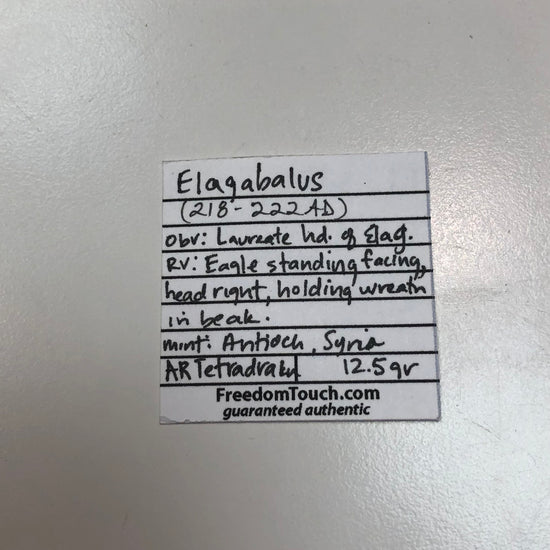 Elagabalus
(218-222 AD)
Obv: Laureate hd. of Elag.
RV: Eagle standing facing,
head right, holding wreath
in beak.
mint: Antioch, Syria
AR Tetradrakm 12.5gr
FreedomTouch.com
guaranteed authentic